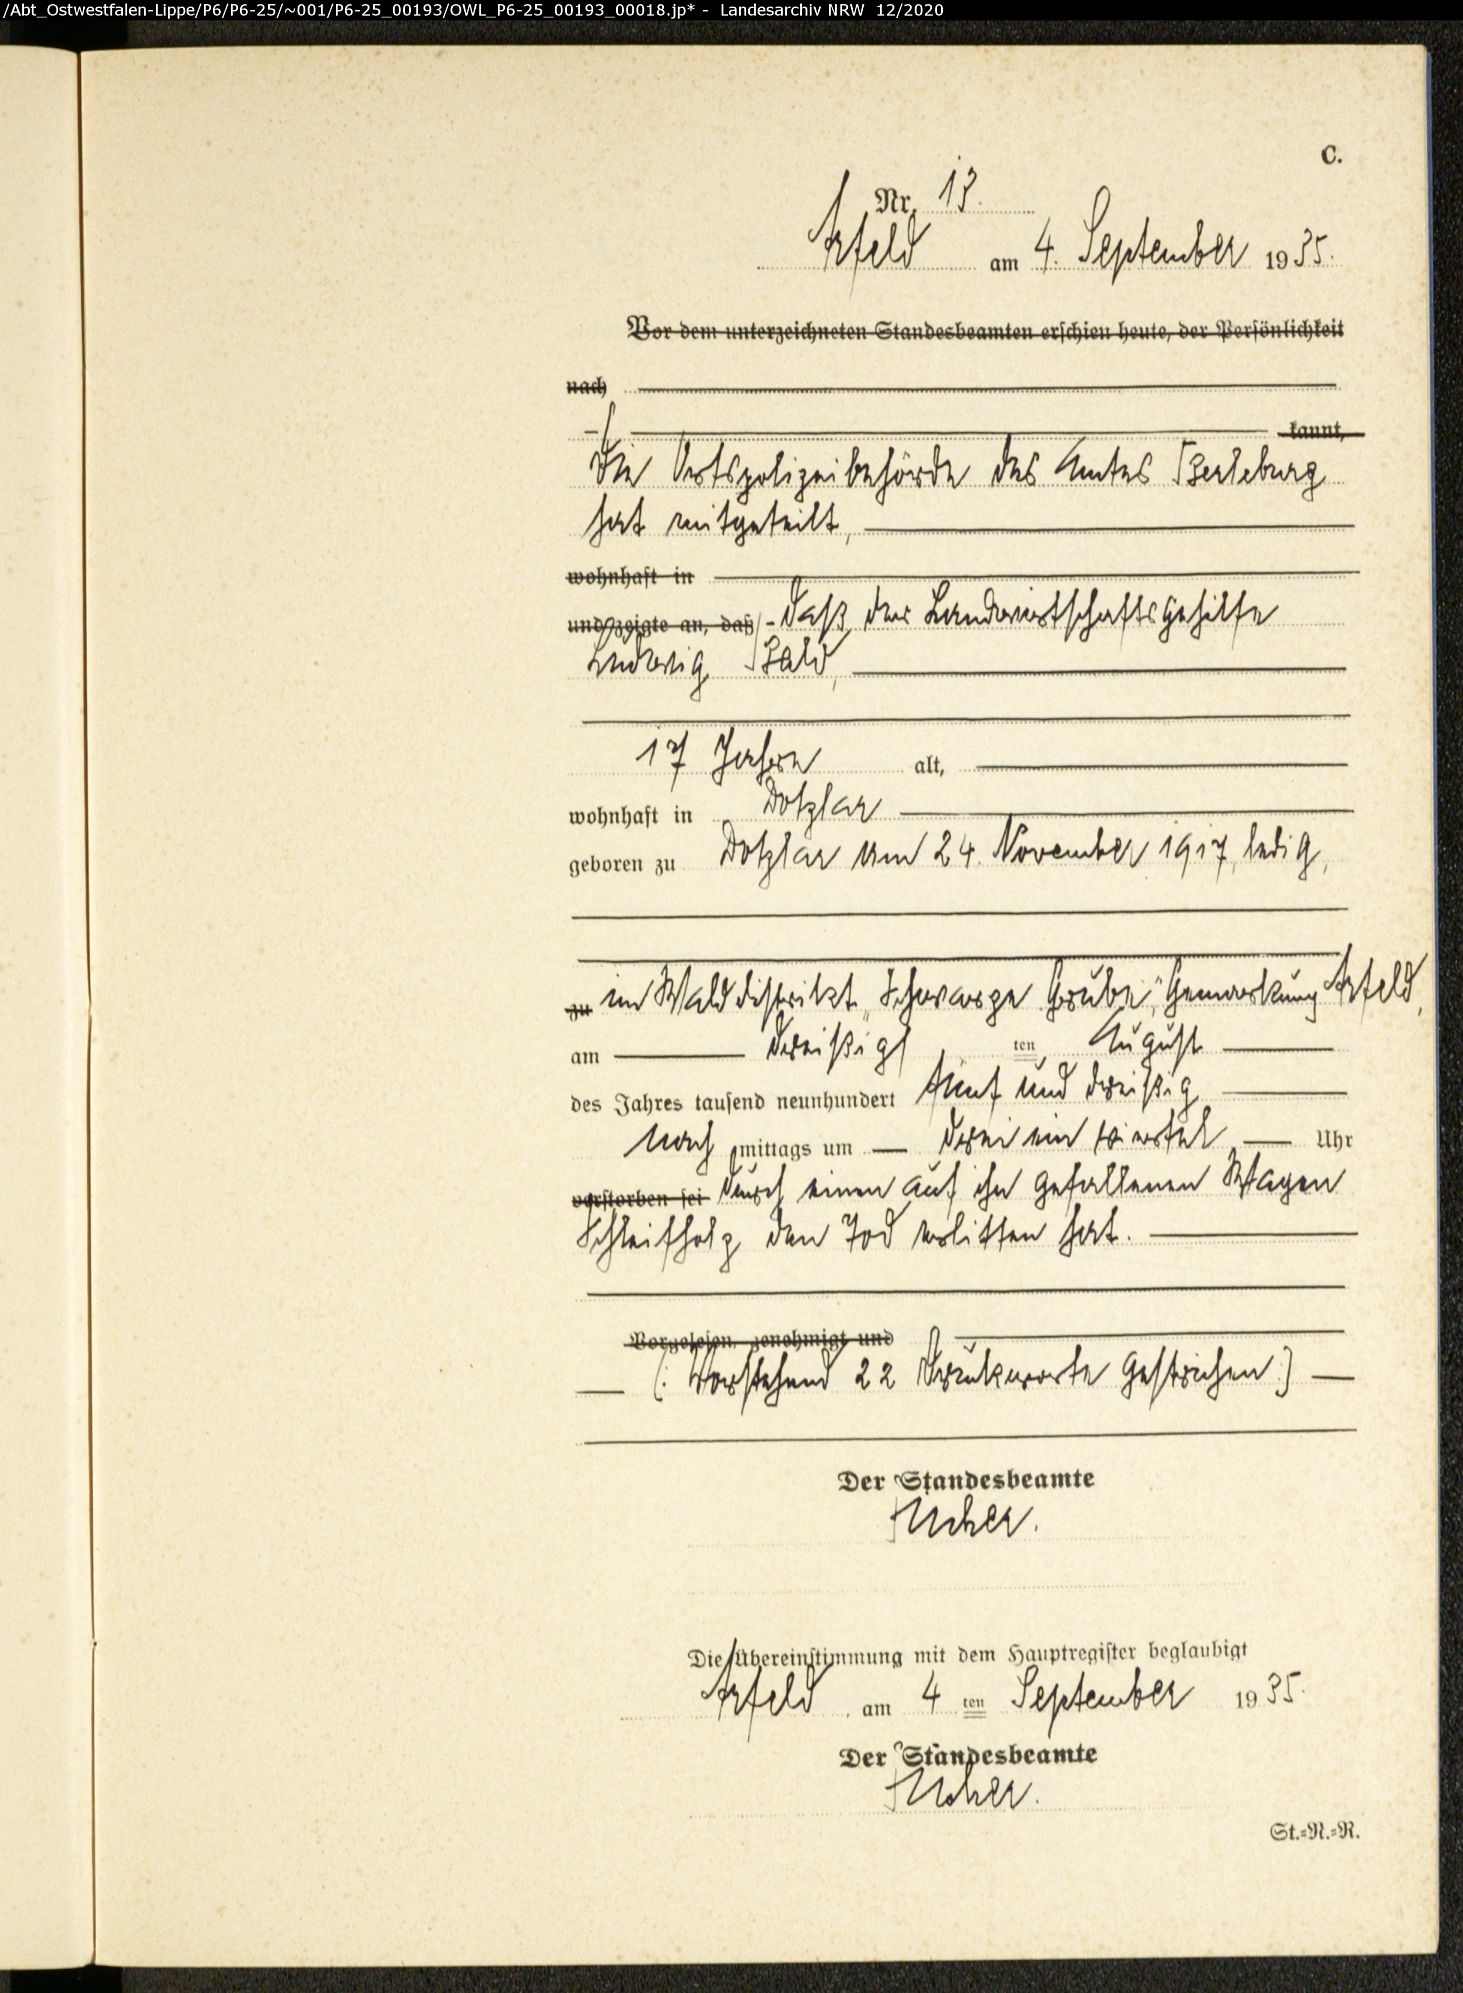 /Abt_Ostwestfalen-Lippe/P6/P6-25/~001/P6-25_00193/OWL_P6-25_00193_00018.jp* - Landesarchiv NRW 12/2020
C.
Nr. 13.
Arfeld am 4. September 1935.
Vor dem unterzeichneten Standesbeamten erschien heute, der Persönlichkeit
nach
kannt,
Die Ortspolizeibehörde des Amtes Berleburg
hat mitgeteilt,
wohnhaft in
und zeigte an, daß - daß der Landwirtschaftsgehilfe
Ludwig Bald,
17 Jahre alt,
wohnhaft in Dotzlar
geboren zu Dotzlar am 24. November 1917, ledig,
zu im Walddistrikt „Schwarze Grube", Gemarkung Arfeld,
am dreißigs ten August
des Jahres tausend neunhundert fünf und dreißig
nach mittags um drei ein viertel Uhr
verstorben sei durch einen auf ihn gefallenen Wagen
Schleifholz den Tod erlitten hat.
Vorgelesen, genehmigt und
(: Vorstehend 22 Druckworte gestrichen :)
Der Standesbeamte
Die Übereinstimmung mit dem Hauptregister beglaubigt
Arfeld, am 4 ten September 1935.
Der Standesbeamte
St.=R.=R.